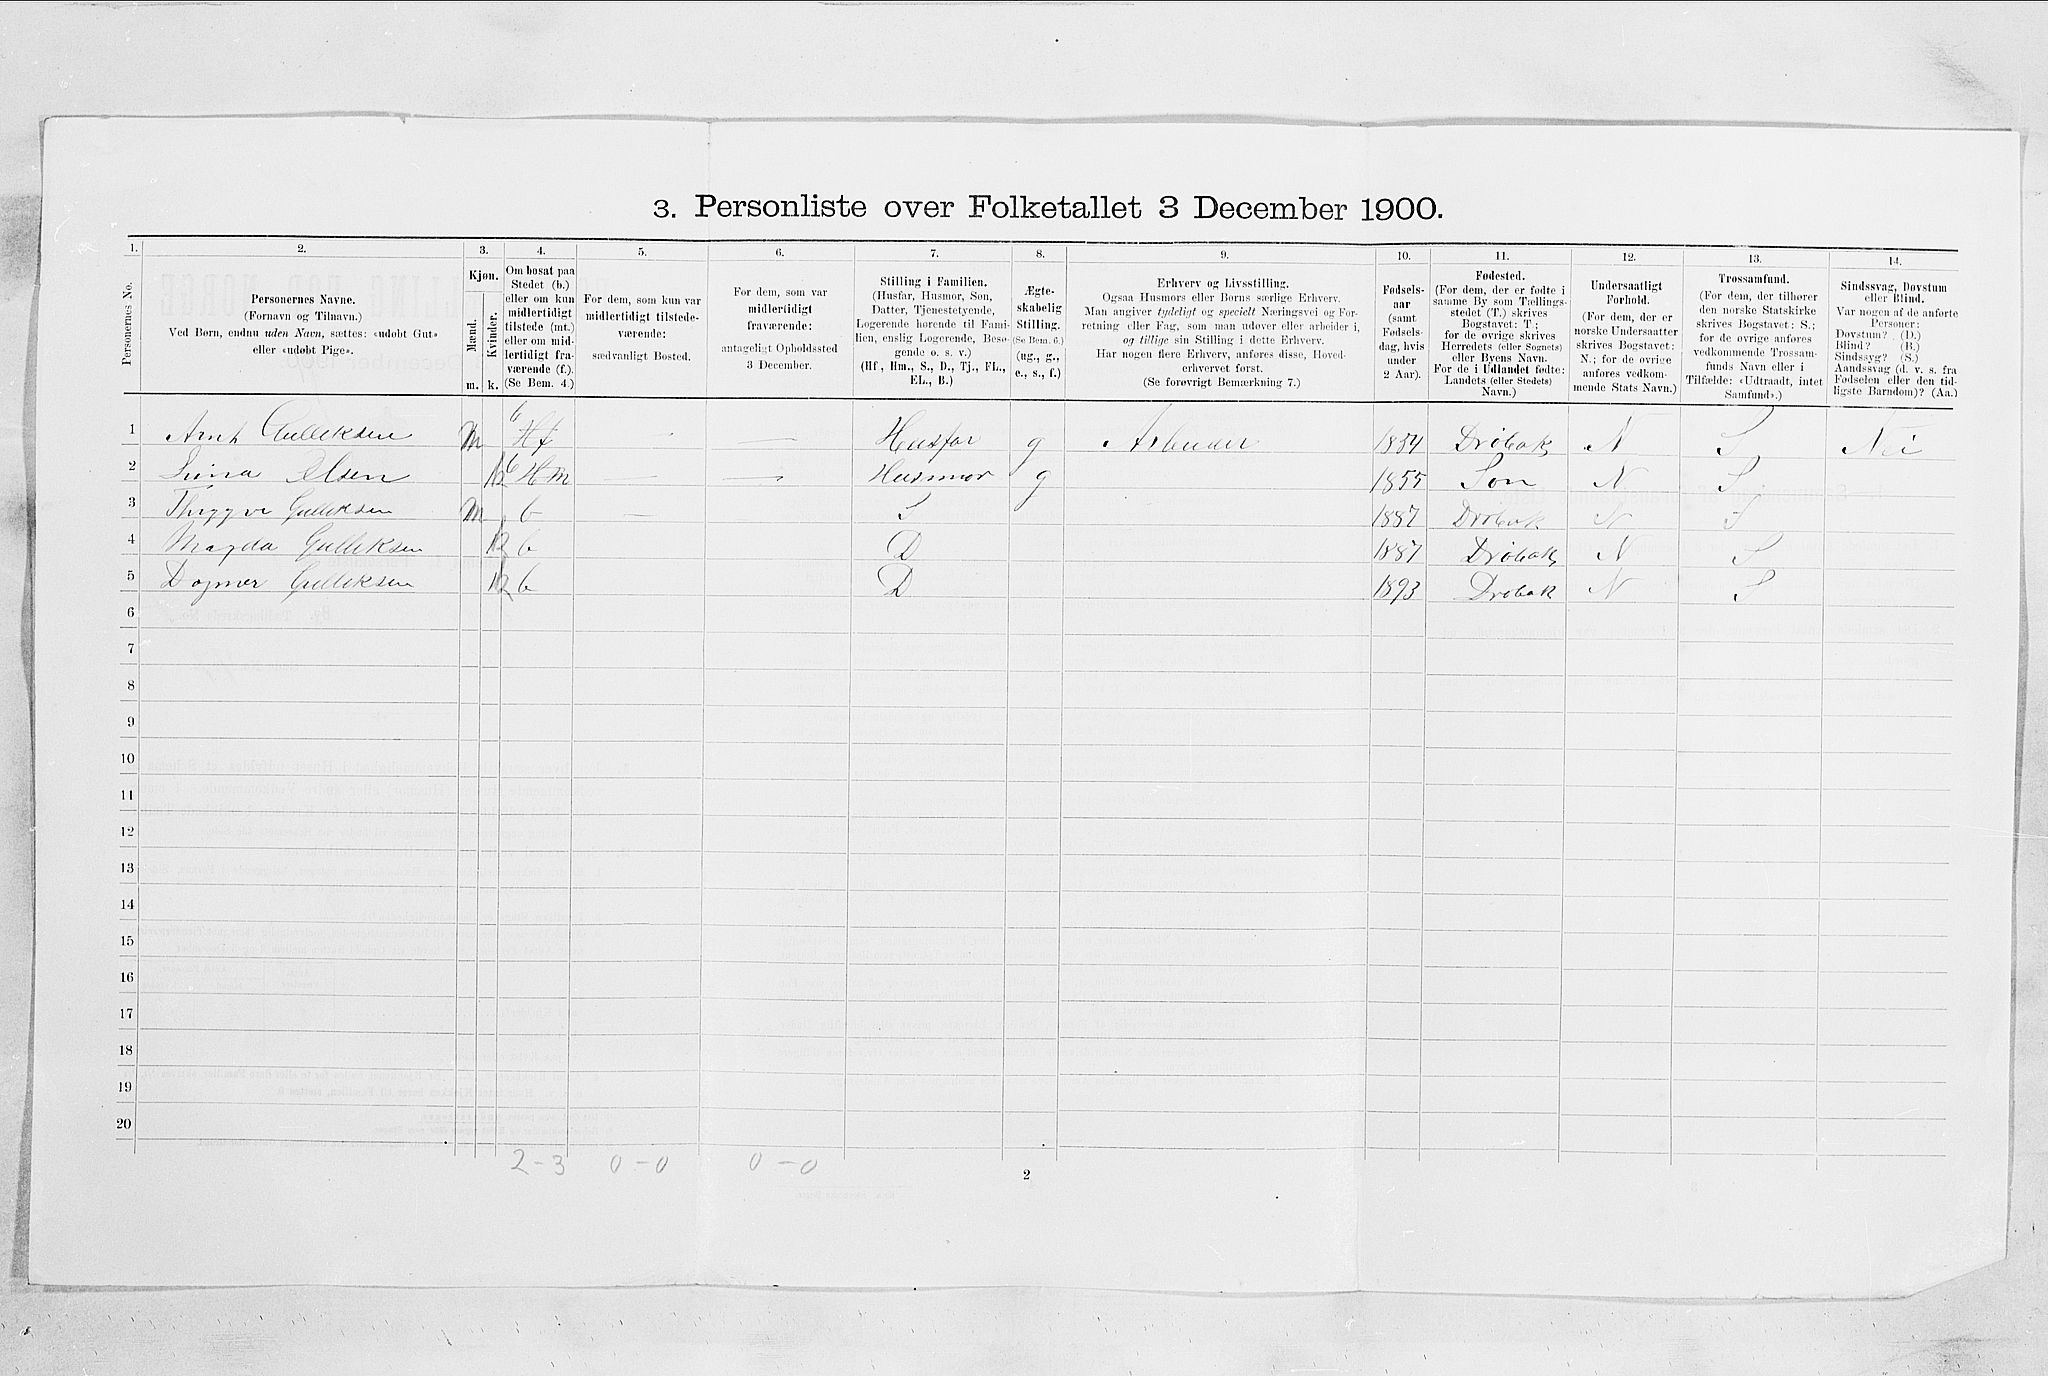 3. Personliste over Folketallet 3 December 1900.
1. 2. 3. 4. 5. 6. 7. 8. 9. 10. 11. 12. 13. 14.
Personernes No.
Personernes Navne.
(Fornavn og Tilnavn.)
Ved Børn, endnu uden Navn, sættes: «udøbt Gut»
eller «udøbt Pige».
Kjøn.
Mænd.
m.
Kvinder.
k.
Om bosat paa
Stedet (b.)
eller om kun
midlertidigt
tilstede (mt.)
eller om mid-
lertidigt fra-
værende (f.).
(Se Bem. 4.)
For dem, som kun var
midlertidigt tilstede-
værende:
sædvanligt Bosted.
For dem, som var
midlertidigt
fraværende:
antageligt Opholdssted
3 December.
Stilling i Familien.
(Husfar, Husmor, Søn,
Datter, Tjenestetyende,
Logerende hørende til Fami-
lien, enslig Logerende, Besø-
gende o. s. v.)
(Hf., Hm., S., D., Tj., FL.,
EL., B.)
Ægte-
skabelig
Stilling.
(Se Bem. 6.)
(ug., g.,
e., s., f.)
Erhverv og Livsstilling.
Ogsaa Husmors eller Børns særlige Erhverv.
Man angiver tydeligt og specielt Næringsvei og For-
retning eller Fag, som man udøver eller arbeider i,
og tillige sin Stilling i dette Erhverv.
Har nogen flere Erhverv, anføres disse, Hoved-
erhvervet først.
(Se forøvrigt Bemærkning 7.)
Fødsels-
aar
(samt
Fødsels-
dag, hvis
under
2 Aar).
Fødested.
(For dem, der er fødte i
samme By som Tællings-
stedet (T.) skrives
Bogstavet: T.;
for de øvrige skrives
Herredets (eller Sognets)
eller Byens Navn.
For de i Udlandet fødte:
Landets (eller Stedets)
Navn.)
Undersaatligt
Forhold.
(For dem, der er
norske Undersaatter
skrives Bogstavet:
N.; for de øvrige
anføres vedkom-
mende Stats Navn.)
Trossamfund.
(For dem, der tilhører
den norske Statskirke
skrives Bogstavet: S.;
for de øvrige anføres
vedkommende Trossam-
funds Navn eller i
Tilfælde: «Udtraadt, intet
Samfund».)
Sindssvag, Døvstum
eller Blind.
Var nogen af de anførte
Personer:
Døvstum? (D.)
Blind? (B.)
Sindssyg? (S.)
Aandssvag (d. v. s. fra
Fødselen eller den tid-
ligste Barndom)? (Aa.)
1 Arnt Gulleksen M b Hf — — Husfar g 1854 Drøbak N S Nei
2 Olsen k b Hm — — Husmor g 1855 Son N S
3 Thrygve Gulleksen M b — S 1887 Drøbak N S
4 Magda Gulleksen k b D 1887 Drøbak N S
5 Dagmar Gulleksen k b D 1893 Drøbak N S
6
7
8
9
10
11
12
13
14
15
16
17
18
19
20
2-3 0-0 0-0
2